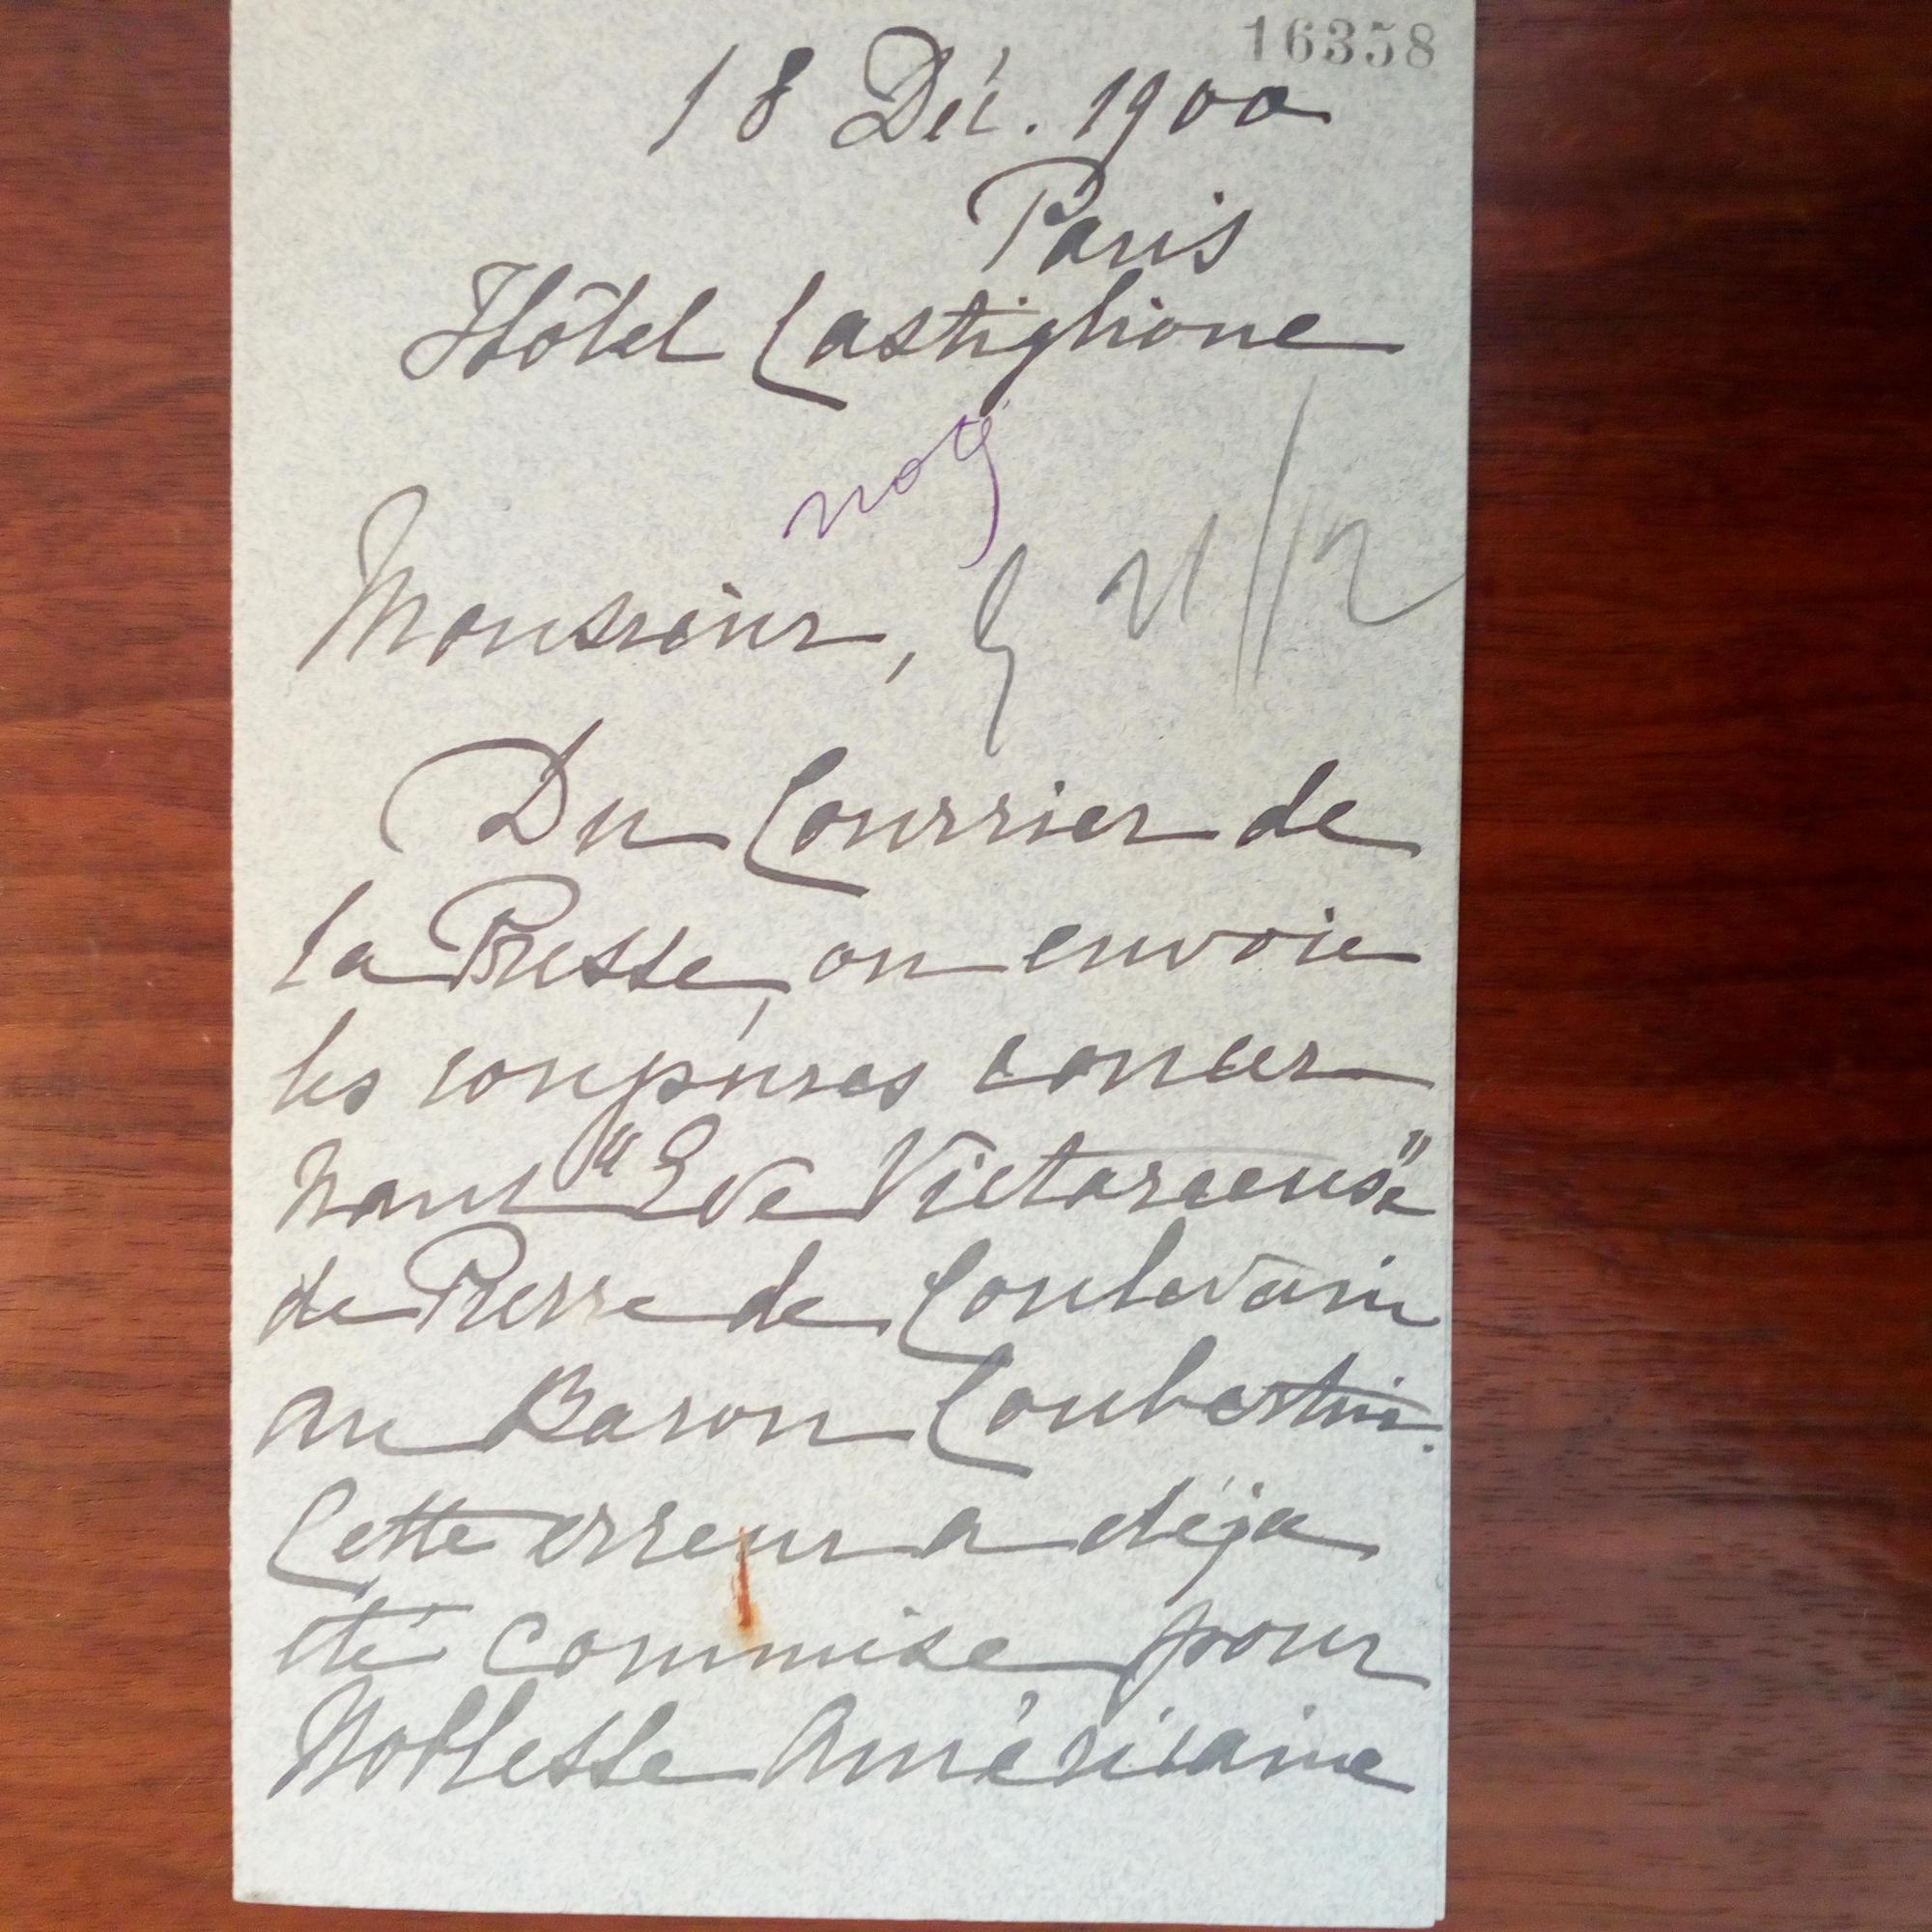 16358
18 Déc. 1900
Paris
Hôtel Castiglione
Monsieur,
21/12
Du Courrier de
la Presse, on envoie
les coupures concer
nant "Eve Victorieuse"
de Pierre de Coulevain
au Baron Coubertin.
Cette erreur a déja
été commise pour
Noblesse Américaine